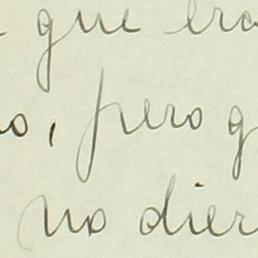 que era
o, pero q
no dier